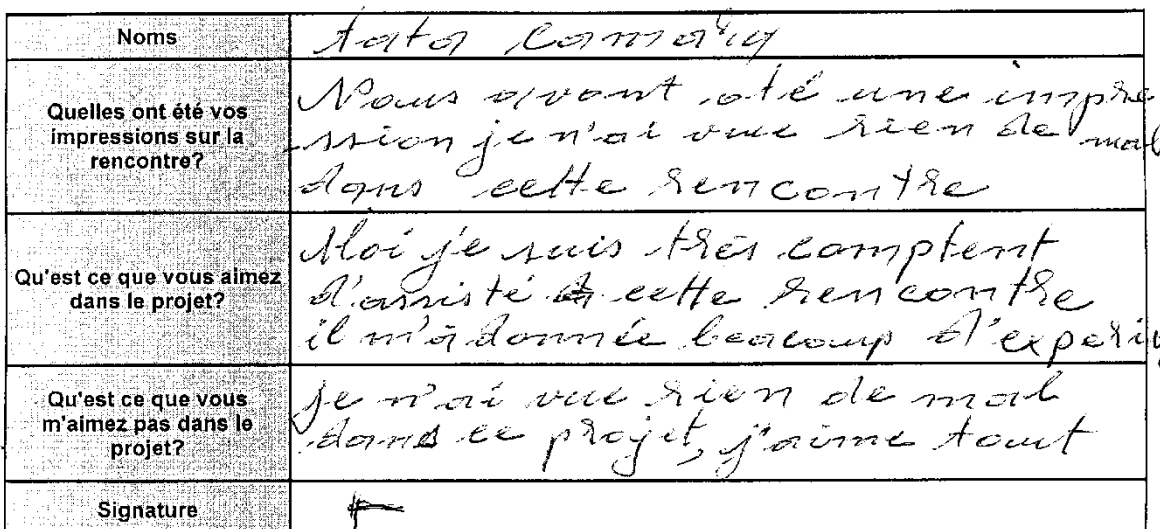 Noms
tata Camara
Quelles ont été vos
impressions sur la
rencontre?
Nous avont été une impre
ssion je n'ai vue rien de mal
dans cette rencontre
Qu'est ce que vous aimez
dans le projet?
Moi je suis très comptent
d'assisté à cette rencontre
il m'à donnée beacoup d'experi
Qu'est ce que vous
m'aimez pas dans le
projet?
je n'ai vue rien de mal
dans ce projet, j'aime tout
Signature